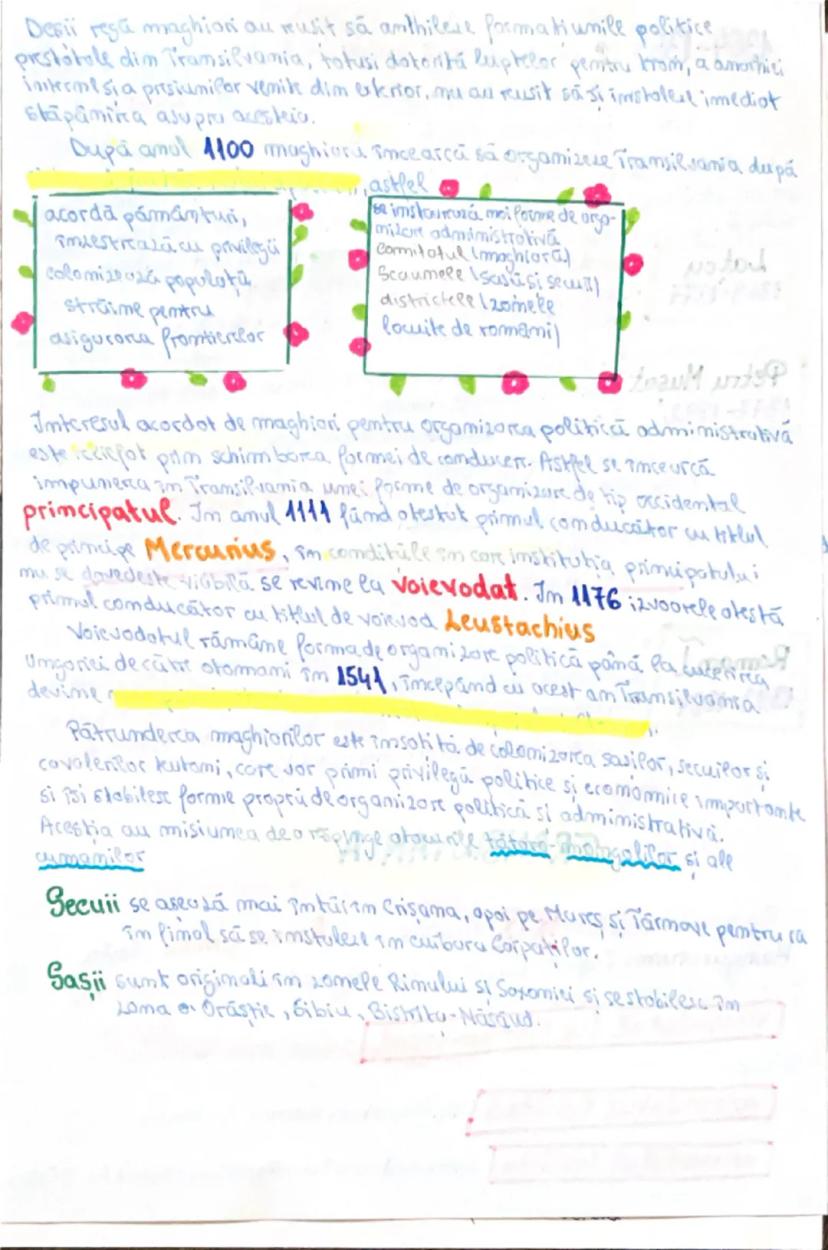 Deși regii maghiari au reusit să anihileze formatiunile politice
prestatale din Transilvania, totusi datorită luptelor pentru tron, a anarhiei
interne și a presiunilor venite din exterior, nu au reusit să si instaleze imediat
stăpânirea asupra acesteia.
După anul 1100 maghiarii încearcă să organizeze Transilvania după
, astfel
acordă pământuri,
înzestrează cu privilegii
colonizează populații
străine pentru
asigurarea frontierelor
se instaurează noi forme de orga-
nizare administrativă
comitatul (maghiară)
Scaunele (sașii și secuii)
districtele (zonele
locuite de români)
Interesul acordat de maghiari pentru organizarea politică administrativă
este reliefat prin schimbarea formei de conducere. Astfel se încearcă
impunerea în Transilvania unei forme de organizare de tip occidental
principatul. In anul 1111 fiind atestat primul conducător cu titlul
de principe Mercurius, în condițiile în care institutia principatului
nu se dovedeste viabilă se revine la voievodat. In 1176 izvoarele atestă
primul conducător cu titlul de voievod Leustachius
Voievodatul rămâne forma de organizare politică până la cucerirea
Ungariei de către otomani în 1541, începând cu acest an Transilvania
devine
Pătrunderea maghiarilor este însotită de colonizarea sasilor, secuilor și
cavalerilor teutoni, care vor primi privilegii politice si economice importante
si isi stabilesc forme proprii de organizare politică si administrativă.
Acestia au misiunea de a respinge atacurile tătaro-mongolilor și ale
cumanilor
Secuii se asează mai întâi în Crișana, apoi pe Mureș și Târnave pentru ca
în final să se instaleze în curbura Carpaților.
Sașii sunt originali în zonele Rinului și Saxoniei și se stabilesc în
zona Orăștie, Sibiu, Bistrița-Năsăud.